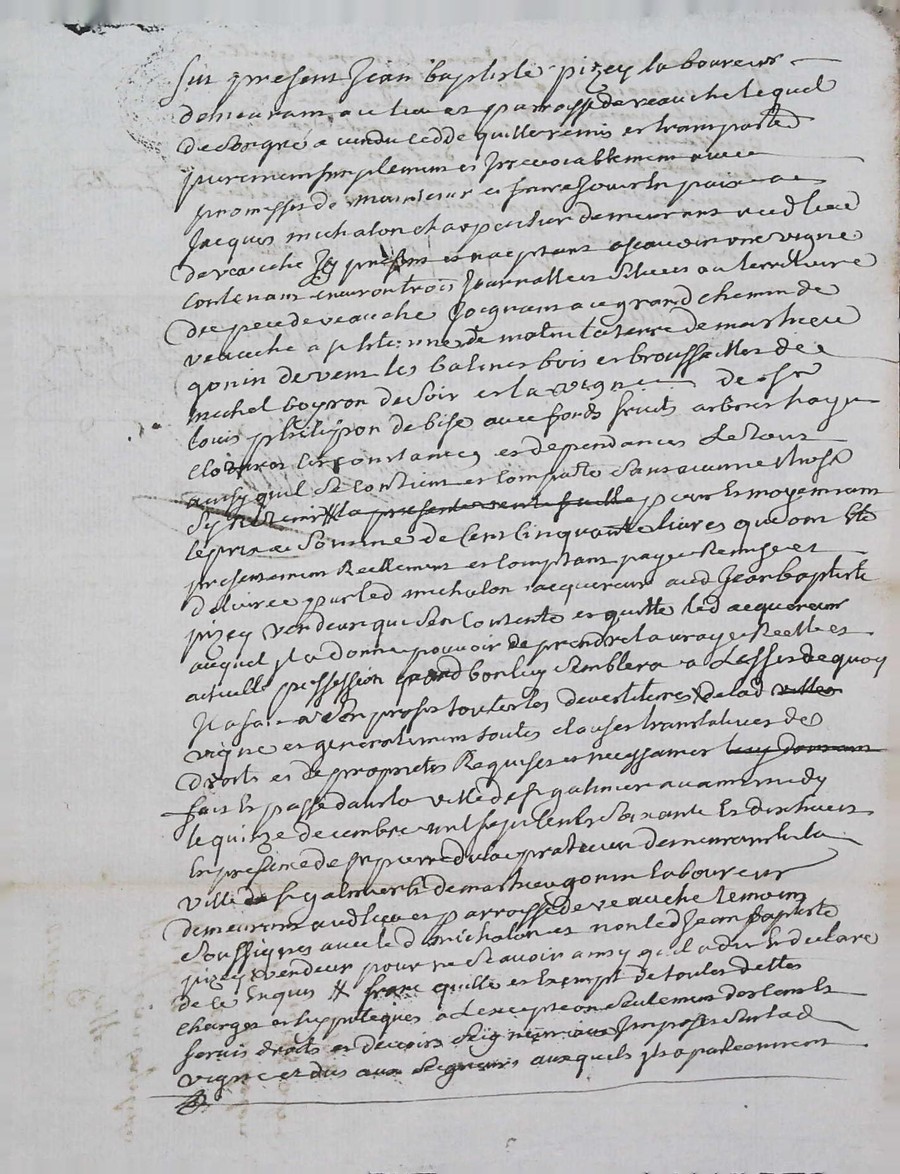 fut present Jean baptiste pizey laboureur
demeurant au lieu et parroisse de veauche lequel
de son gré a vendu cedde quitte remis et transporte
purement simplement et Irrevocablement avec
promesse de maintenir et faire Jouir En paix a
Jacques michalon charpentier demeurant aud lieu
de veauche Icy present et acceptant ascavoir une vigne
contenant environ trois Journallees situees au territoire
de veauche Joignant a ce grand chemin de
veauche a de matin la terre de mathieu
gonin de vent les balmes bois et brousailles de
michel boyron de soir et la vigne de Sr
louis philippon de bise avec fonds fruits arbres hayes
clotures circonstances et dependances Le tout
ainsy quil se contient et comporte sans aucune chose
sy retenir # la presente vente faitte pour Et moyennant
le prix et somme de Cent Cinquante livres que ont Eté
presentement Reellement et comptant payee Remise et
delivree par led michalon acquereur aud Jean baptiste
pizey vendeur qui sen contente et quitte led acquereur
auquel Il a donné pouvoir de prendre la vraye Reelle et
actuelle possession quand bon luy semblera a Leffet de quoy
Il a fait a son proffit toutes les devestitures de lad
vigne et generalement toutes clauses translatives de
droits et de proprietés Requises et necessaires
fait Et passé dans la ville de St galmier avant midy
le quinze decembre mil sept cents soixante Et dix huit
En presence de Sr pierre praticien demeurant En la
ville de St galmier Et de mathieu gonin laboureur
demeurant aud lieu et parroisse de veauche temoins
soussignés avec led michalon et non led Jean baptiste
pizey vendeur pour ne scavoir ainsy quil a dit Et declaré
de ce Enquis # franc quitte et Exempt de toutes dettes
charges et hypoteques a Lexception seulement des cens Et
servis droits et devoirs seigneuriaux Imposés sur lad
vigne et dus aux seigneurs auxquels Ils apartiennent